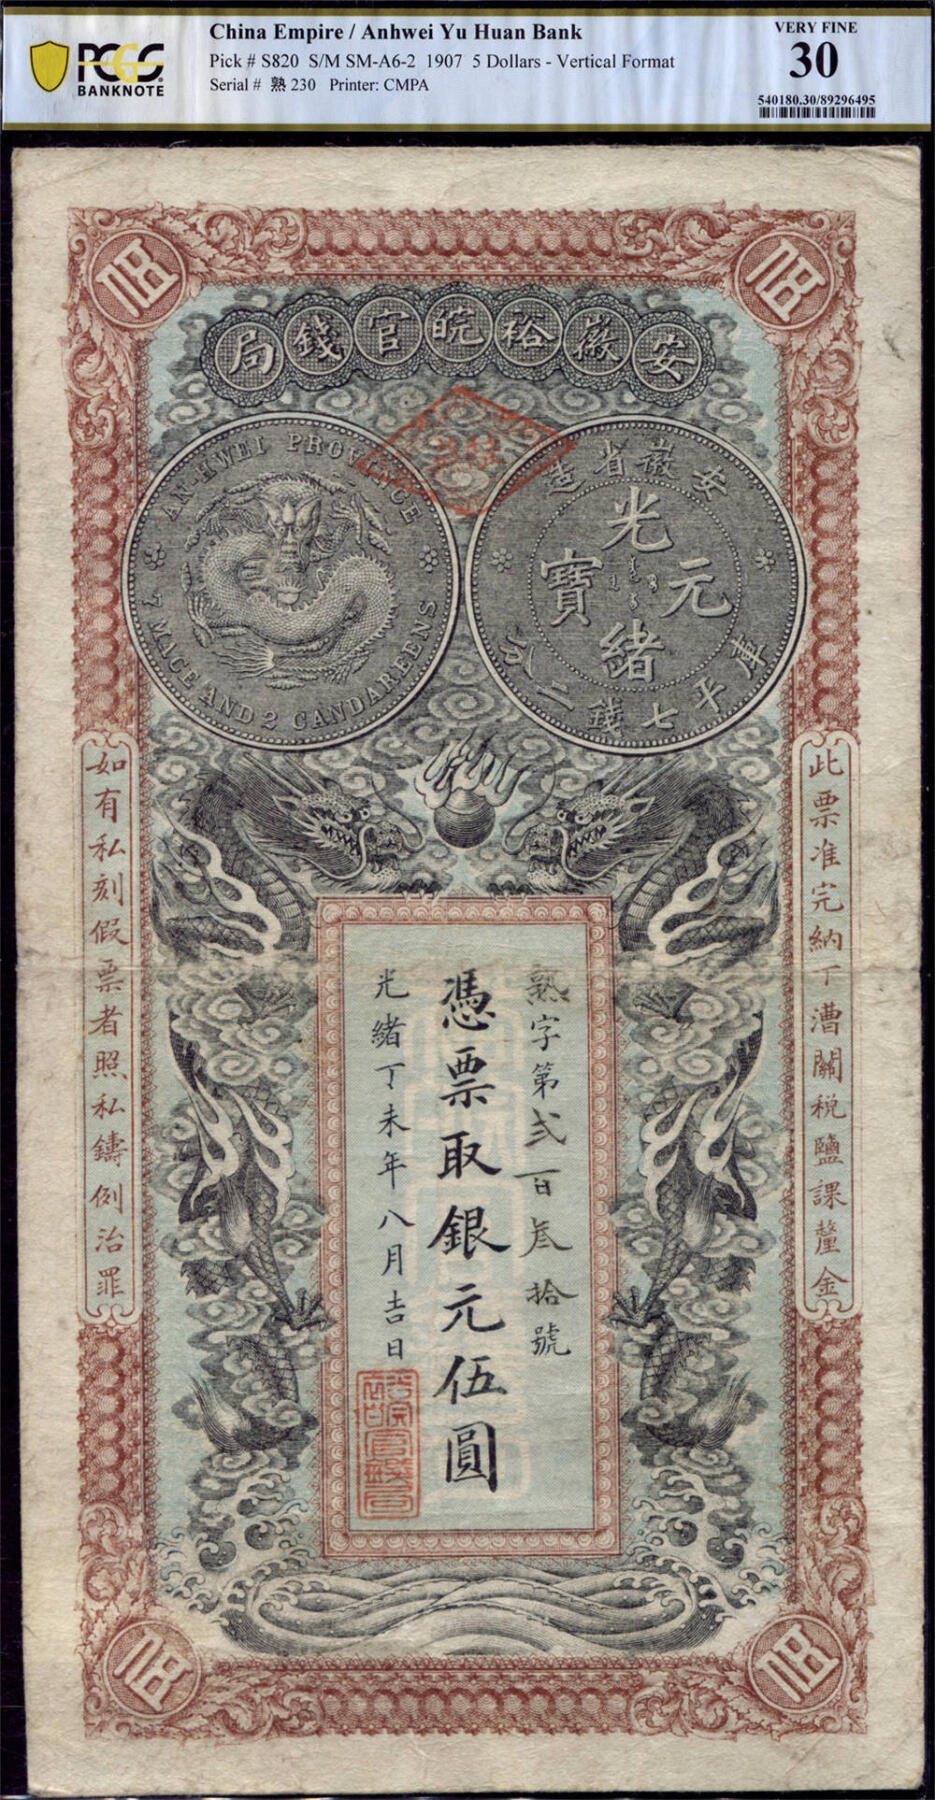 China Empire / Anhwei Yu Huan Bank
Pick # S820 S/M SM-A6-2 1907 5 Dollars - Vertical Format
Serial # 熟 230 Printer: CMPA
PCGS
BANKNOTE
VERY FINE
30
540180.30/89296495
伍
伍
安徽裕皖官錢局
AN-HWEI PROVINCE
7 MACE AND 2 CANDAREENS
安徽省造
光緒元寶
庫平七錢二分
此票准完納丁漕關稅鹽課釐金
熟字第弍百叁拾號
憑票取銀元伍圓
光緒丁未年八月吉日
裕皖官錢局
如有私刻假票者照私鑄例治罪
伍
伍